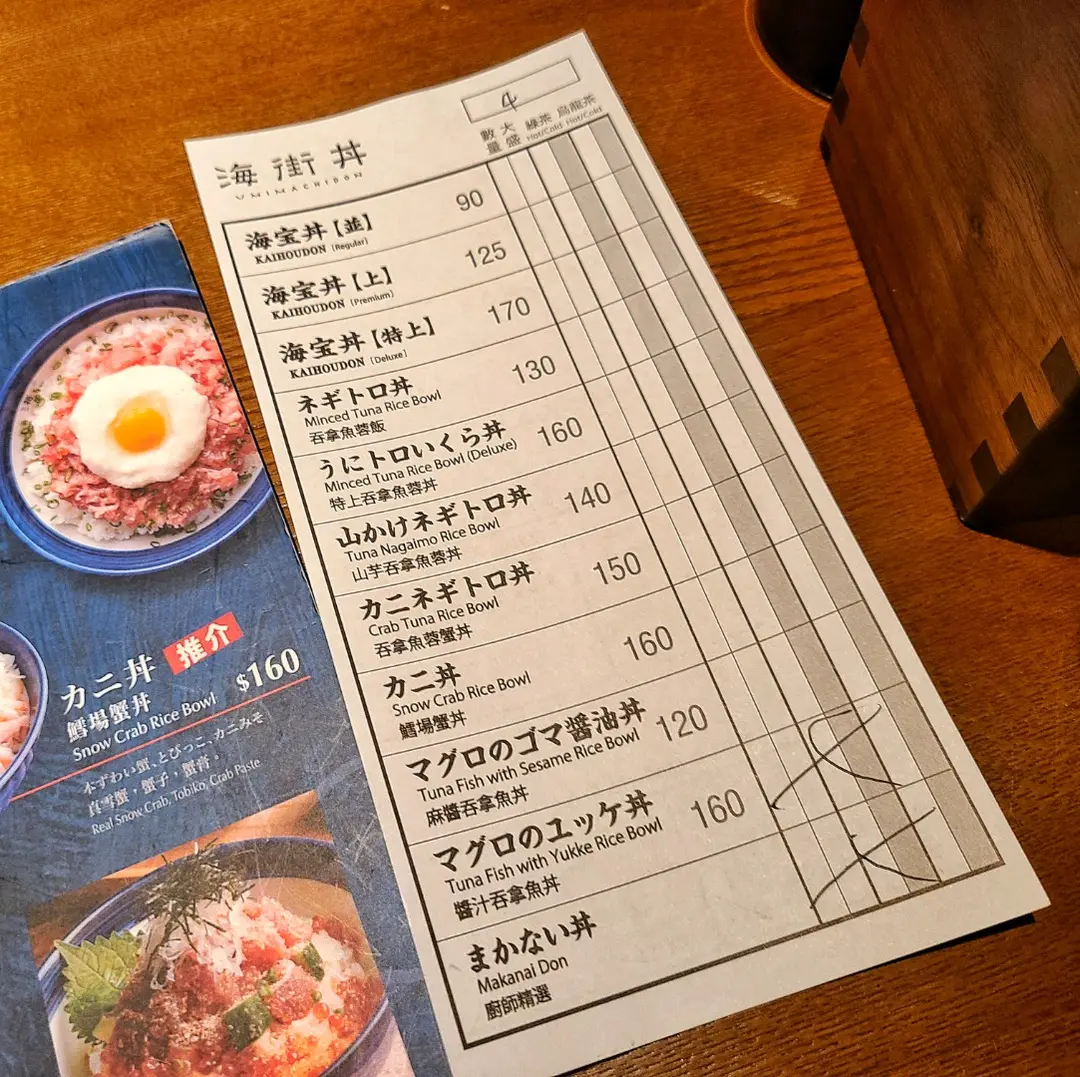 4
海街丼
UMIMACHIDON
數量 大盛 綠茶 烏龍茶
Hot/Cold Hot/Cold
海宝丼【並】 90
KAIHOUDON (Regular)
海宝丼【上】 125
KAIHOUDON (Premium)
海宝丼【特上】 170
KAIHOUDON (Deluxe)
ネギトロ丼 130
Minced Tuna Rice Bowl
吞拿魚蓉飯
うにトロいくら丼 160
Minced Tuna Rice Bowl (Deluxe)
特上吞拿魚蓉丼
山かけネギトロ丼 140
Tuna Nagaimo Rice Bowl
山芋吞拿魚蓉丼
カニネギトロ丼 150
Crab Tuna Rice Bowl
吞拿魚蓉蟹丼
カニ丼 160
Snow Crab Rice Bowl
鱈場蟹丼
マグロのゴマ醤油丼 120
Tuna Fish with Sesame Rice Bowl
麻醬吞拿魚丼
マグロのユッケ丼 160
Tuna Fish with Yukke Rice Bowl
醬汁吞拿魚丼
まかない丼
Makanai Don
廚師精選
カニ丼 推介
鱈場蟹丼
Snow Crab Rice Bowl $160
本ずわい蟹、とびっこ、カニみそ
真雪蟹，蟹子，蟹膏。
Real Snow Crab, Tobiko, Crab Paste